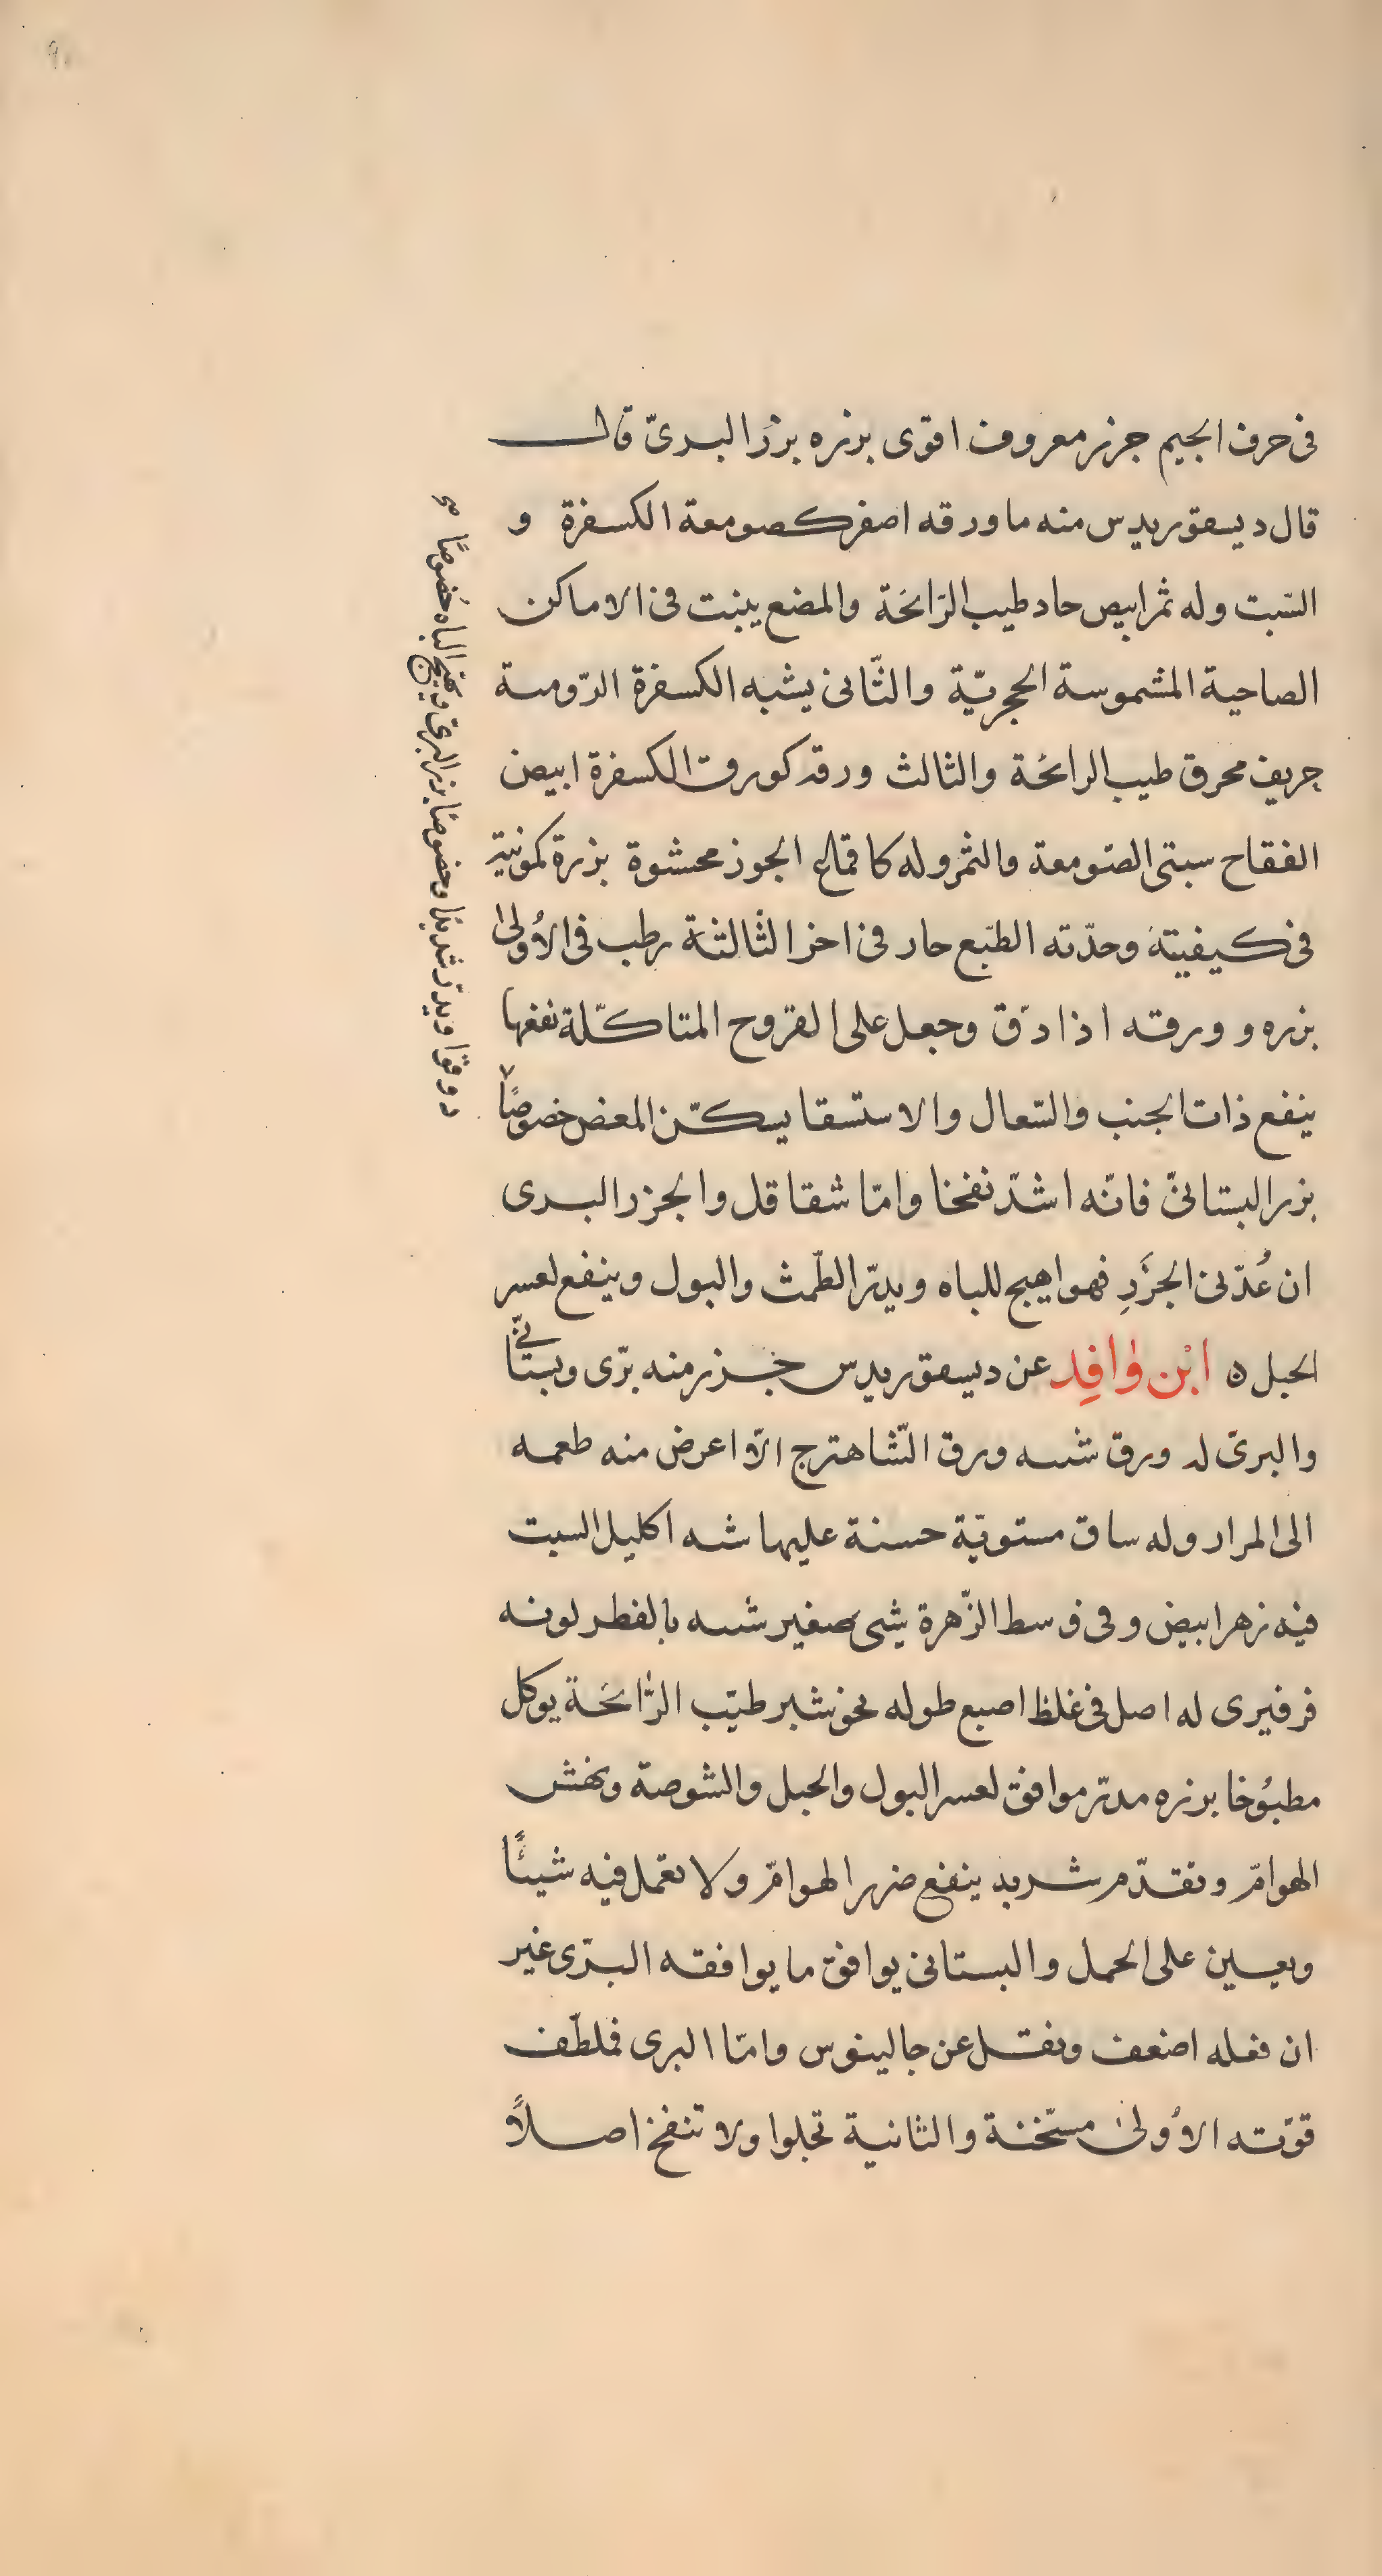 فى حرف الجيم جزر معروف اقوى بزره بزر البرىّ قال
قال ديسقوريدس منه ما ورقه اصفر كصومعة الكسفرة و
السّبت وله ثمر ابيض حاد طيب الرّائحَة والمضع ينبت فى الاماكن
الصاحية المشموسة الحجريّة والثّانى يشبه الكسفرة الرّومىة
حريف محرق طيب الرائحَة والثالث ورقه كورق الكسفرة ابيض
الفقاح سبتى الصّومعة والثمر وله كاقماع الجوز محشوة بزرة كمونية
فى كيفيته وحدّته الطّبع حار فى اخر الثالثة رطب فى الأولىٰ
بزره و ورقه اذا دّق وجعل على القروح المتاكّلة نفعها
ينفع ذات الجنب والسّعال والاستسقا يسكّن المعض خصوصًا
بزر البستانىّ فانّه اشدّ نفخا وامّا شقاقل والجزر البرى
ان عُدّ فى الجزَرِ فهو اهيج للباه ويدرّ الطّمث والبول وينفع لعسر
الحبل ه ابْن وٰافِد عن ديسقوريدس جزر منه برّى وبستانّى
والبرىّ له ورق شبه ورق الشّاهترج الّا اعرض منه طعمه
الى المرار وله ساق مستويّة حسنة عليها شبه اكليل السبت
فيه زهر ابيض وفى وسط الزّهرة شى صغير شبه بالفطر لونه
فرفيرى له اصل فى غلظ اصبع طوله نحو شبر طيّب الرّائحَة يوكل
مطبُوخا بزره مدرّ موافق لعسر البول والحبل والشوصة ونهش
الهوامّ وتقدّم شربه ينفع ضرر الهوامّ ولا تعمل فيه شيئًا
ويعين على الحمل والبستانى يوافق ما يوافقه البرّى غير
ان فعله اضعف ونقل عن جالينوس وامّا البرى فملطّف
قوّته الأولىٰ مسّخنة والثانية تجلوا ولا تنفخ اصلًا
دوقوا ويدرّ شديدًا وخصوصًا بزر البرى ويهيج الباه خصُوصًا